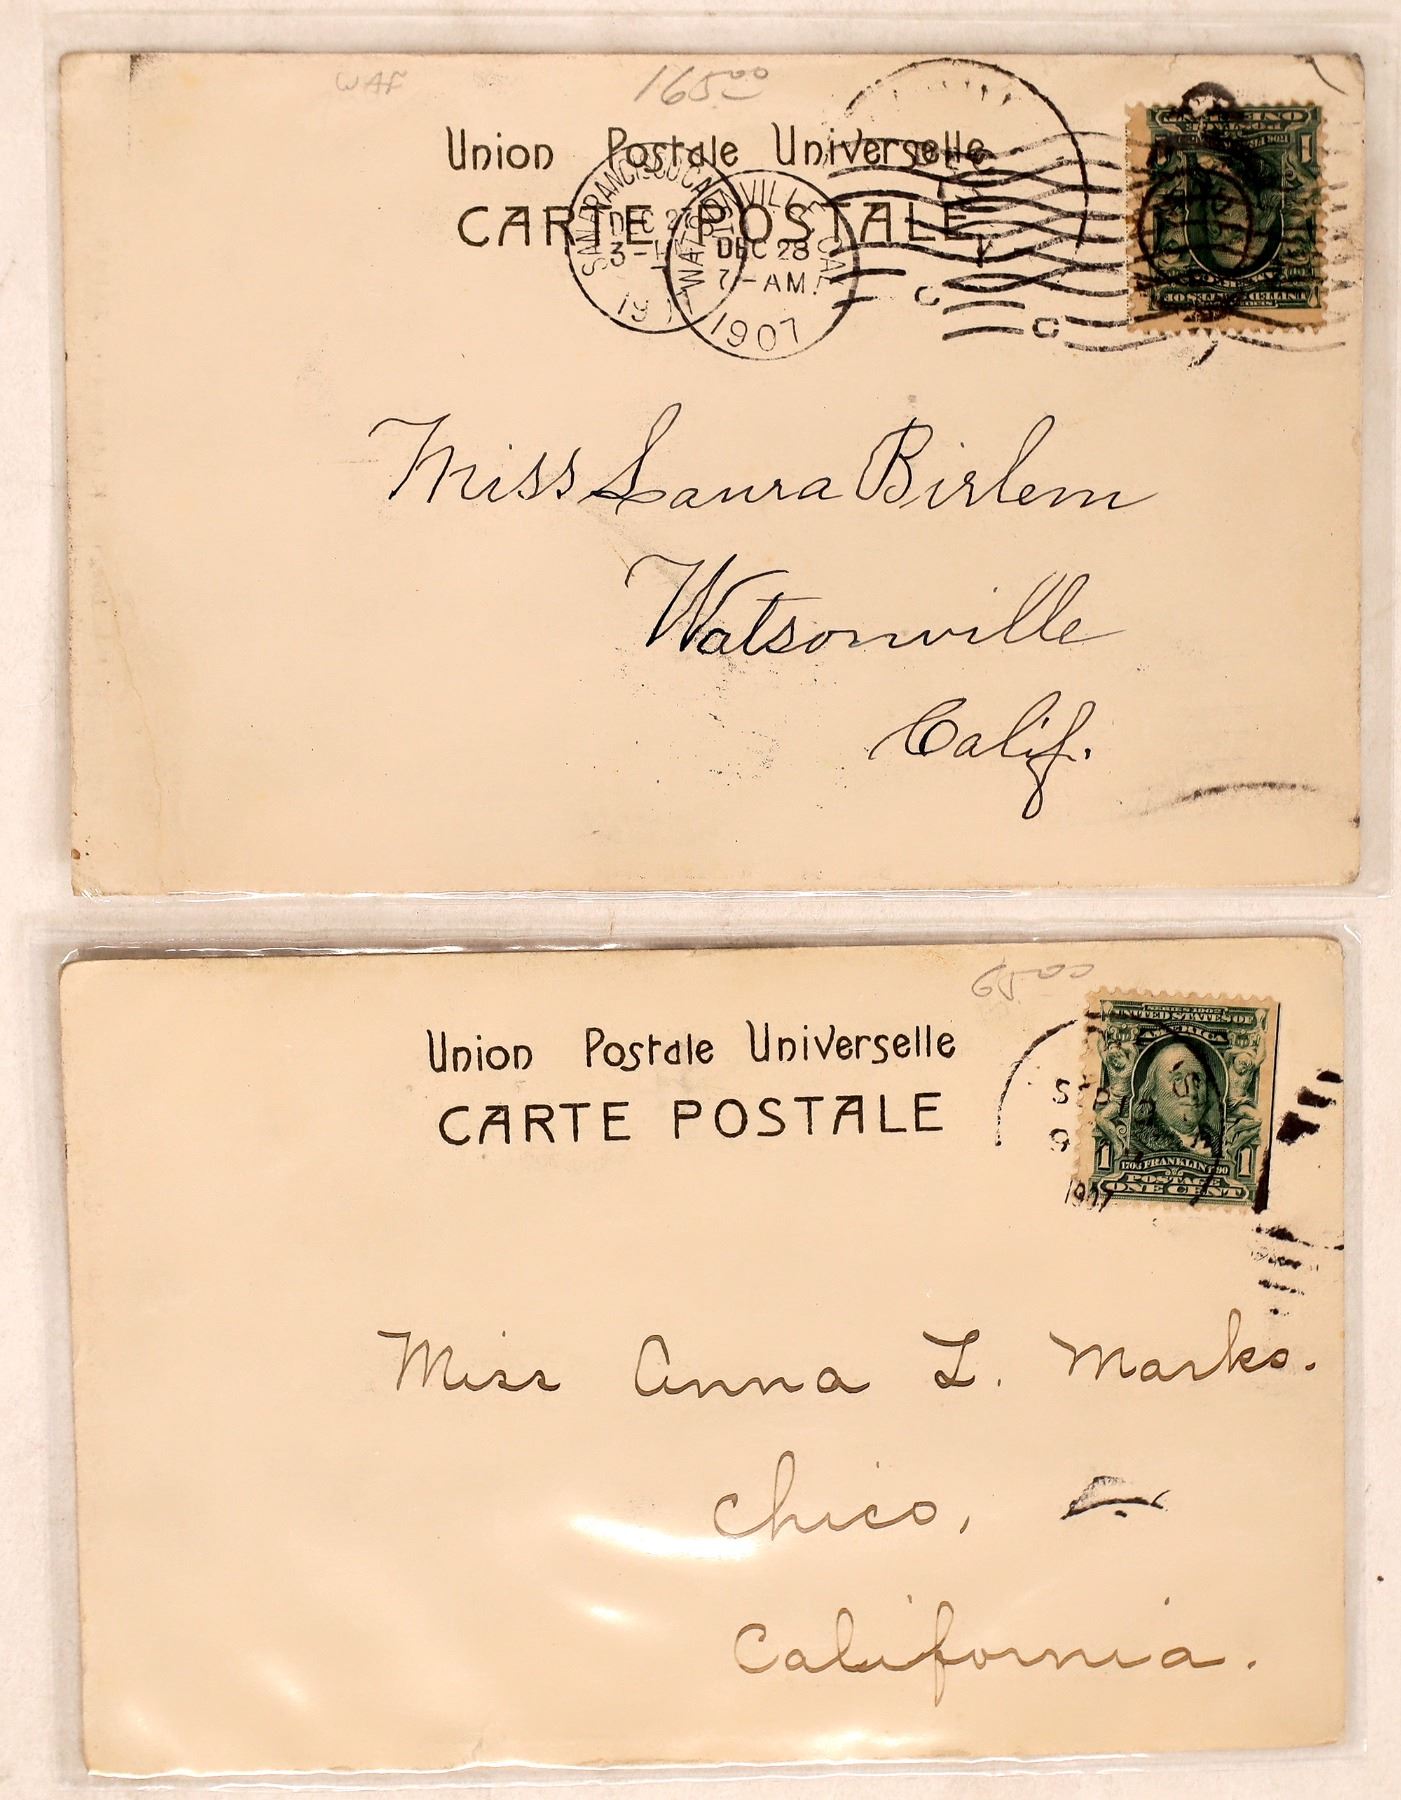 WAF
165.00
Union Postale Universelle
CARTE POSTALE
SAN FRANCISCO CAL
DEC 27
WATSONVILLE CAL
DEC 28
7-AM
1907
Miss Laura Birlem
Watsonville
Calif.
65.00
Union Postale Universelle
CARTE POSTALE
SERIES 1902
UNITED STATES OF
AMERICA
1 1
FRANKLIN
POSTAGE
ONE CENT
SEP
1907
Miss Anna L. Marks.
Chico,
California.